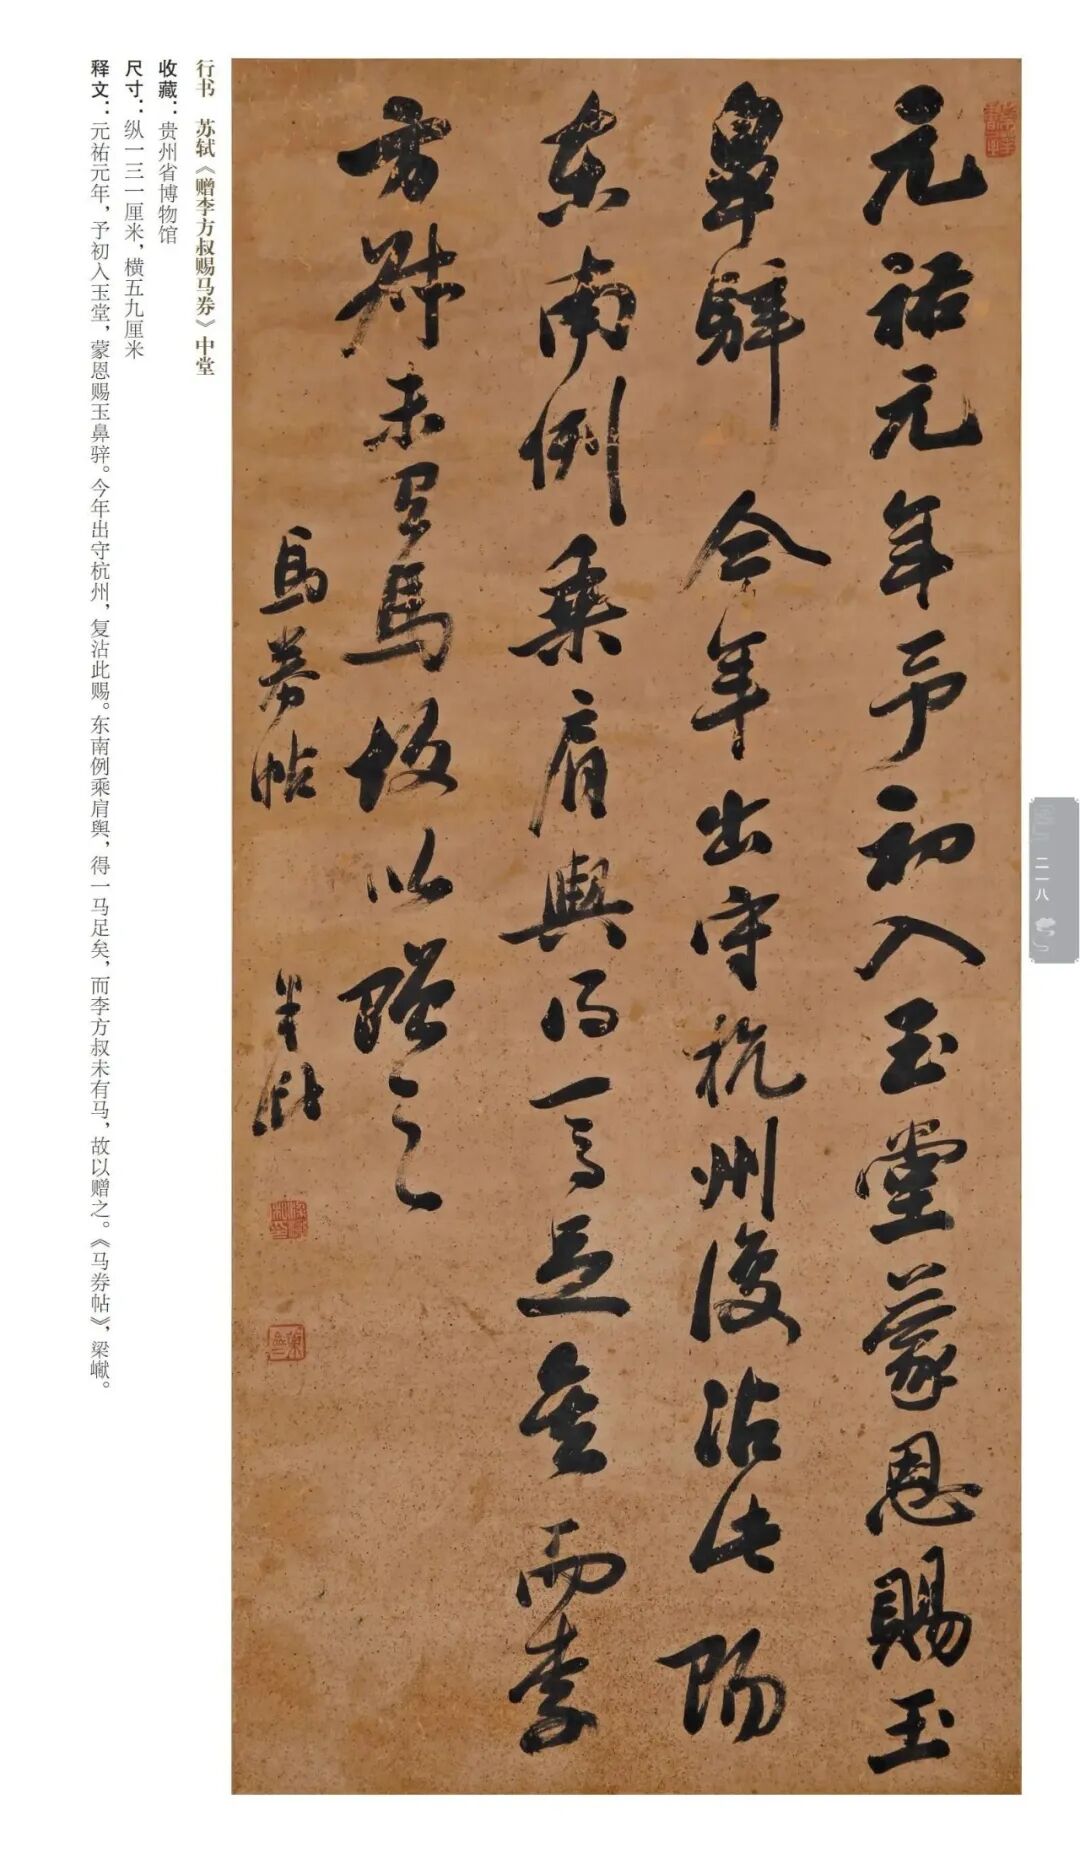 二一八
元祐元年予初入玉堂蒙恩賜玉
鼻騂今年出守杭州復沾此賜
東南例乘肩輿得一馬足矣而李
方叔未有馬故以贈之
馬券帖 梁巘
行书 苏轼《赠李方叔赐马券》中堂
收藏：贵州省博物馆
尺寸：纵一三一厘米，横五九厘米
释文：元祐元年，予初入玉堂，蒙恩赐玉鼻骍。今年出守杭州，复沾此赐。东南例乘肩舆，得一马足矣，而李方叔未有马，故以赠之。《马券帖》，梁巘。